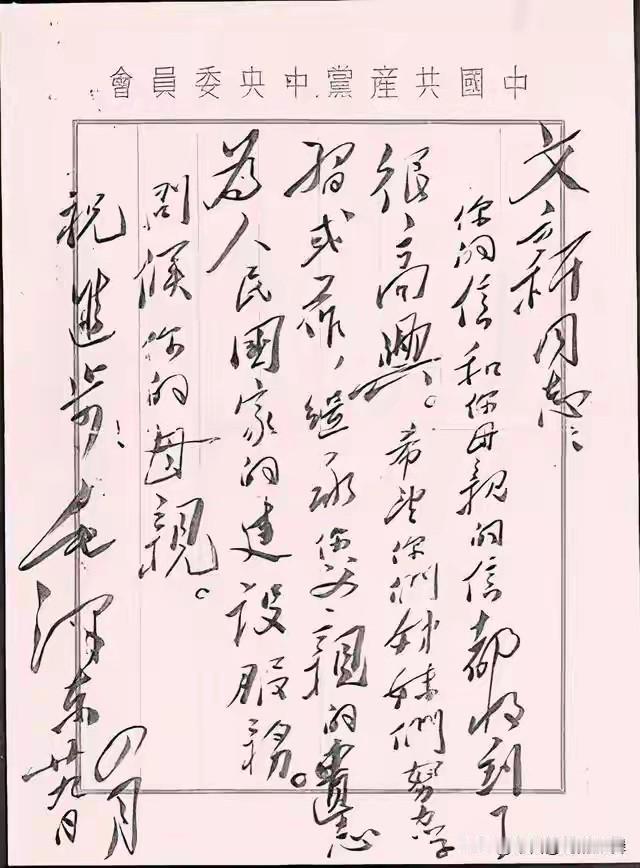 中國共產黨中央委員會
文新同志：
你的信和你母親的信都收到了
很高興。希望你們姊妹們努力学
習或工作，繼承你父親的遺志
為人民國家的建設服務。
問候你的母親。
祝進步！毛澤東
四月
廿九日